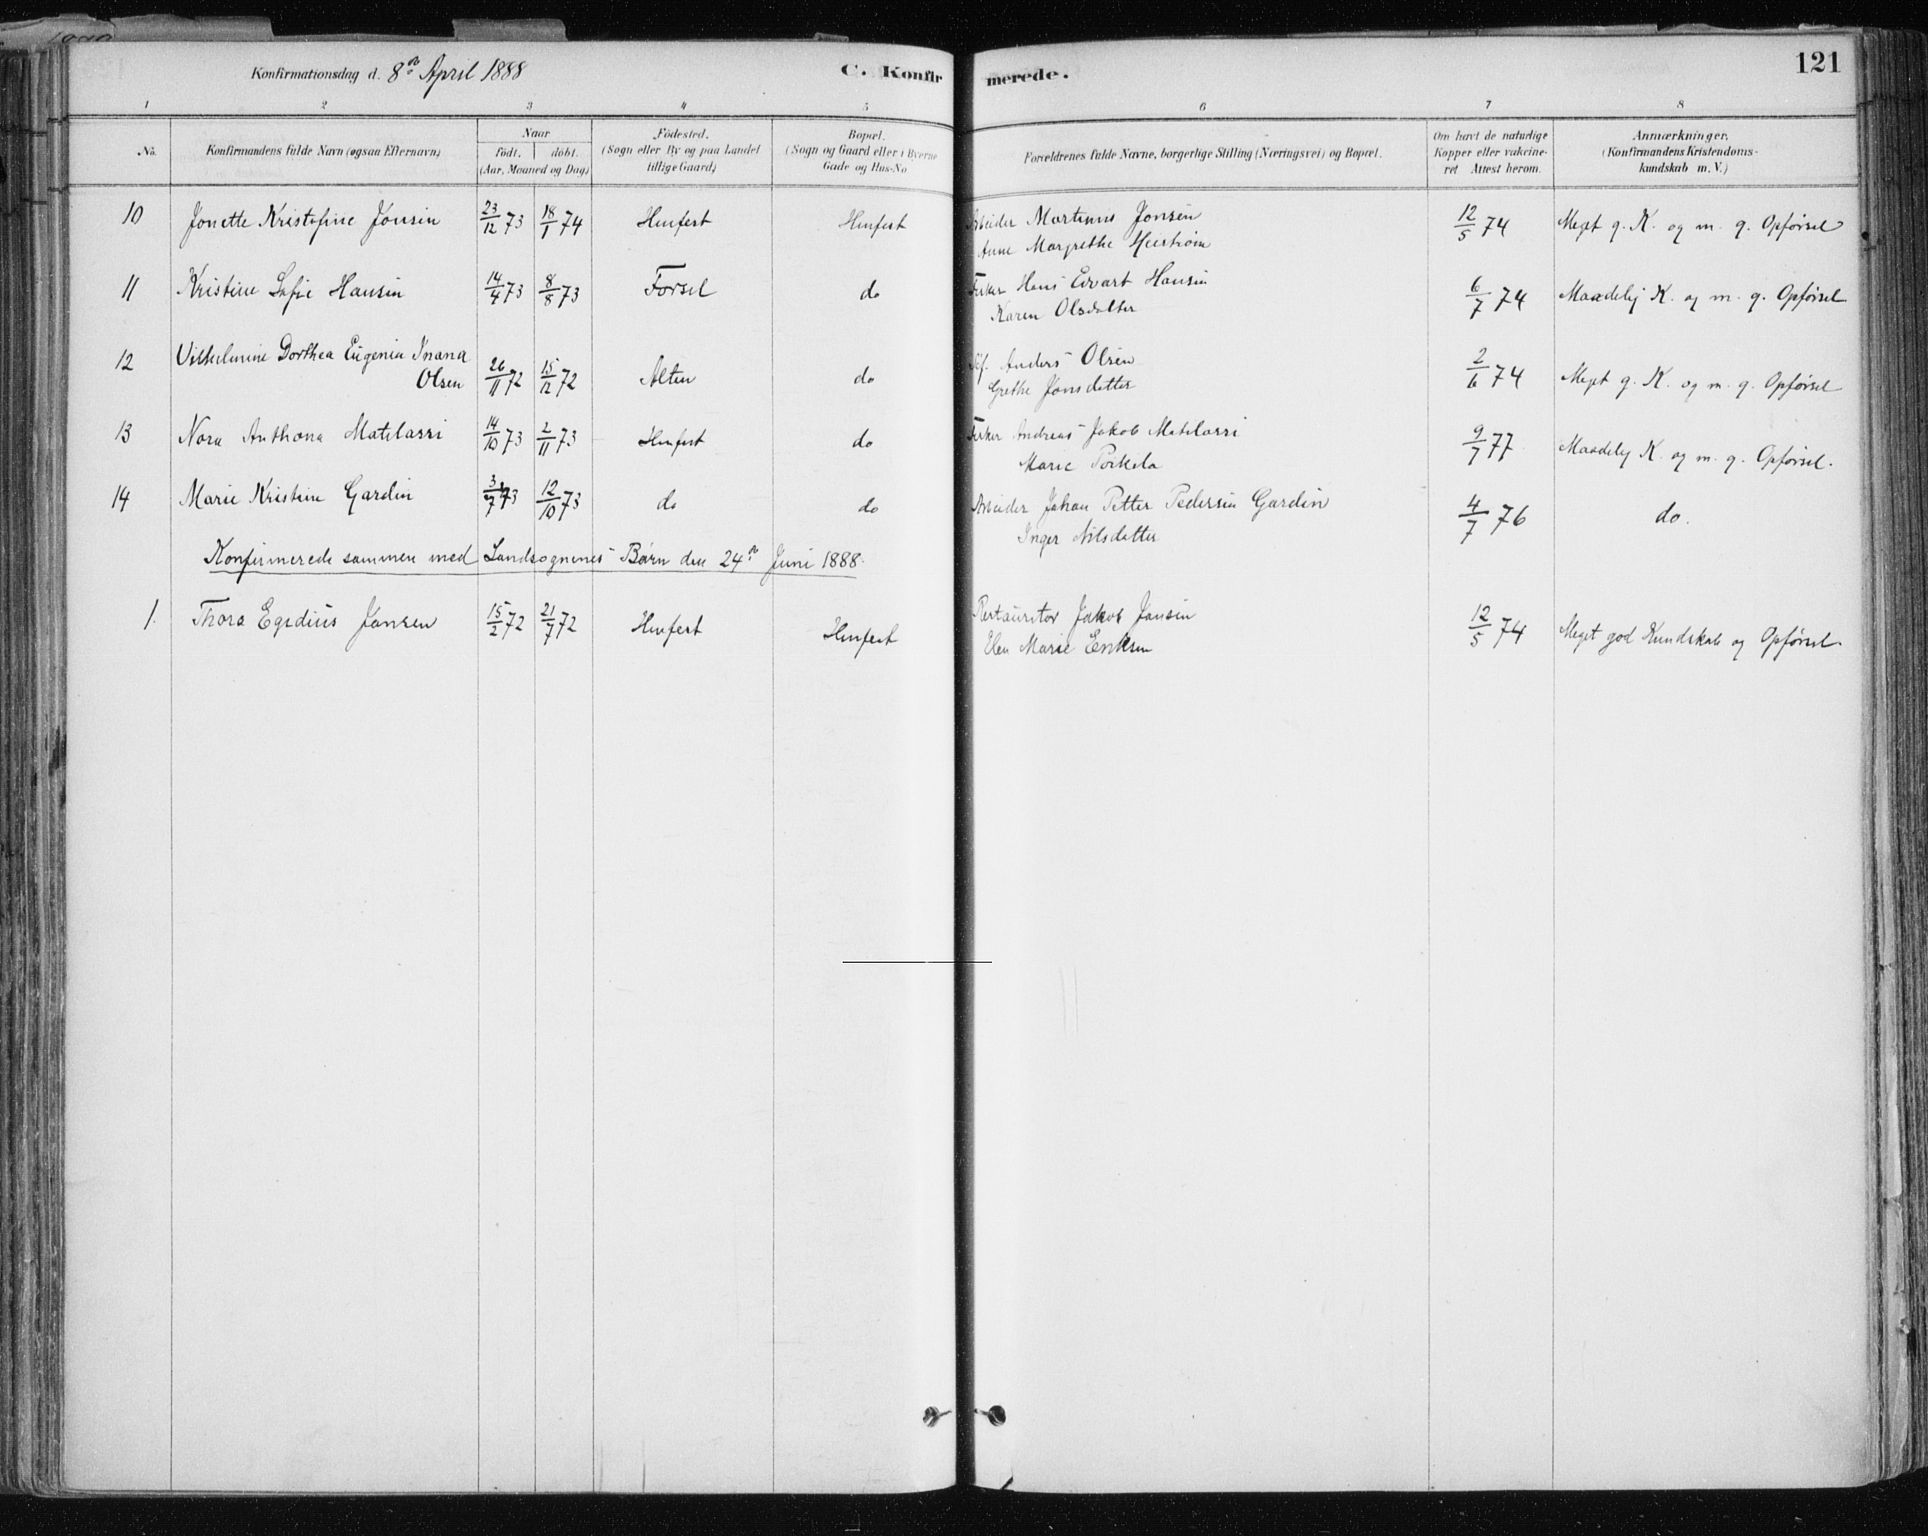 Konfirmationsdag d. 8de April 1888 C. Konfirmerede. 121
1 2 3 4 5 6 7 8
No. Konfirmandens fulde Navn (ogsaa Efternavn) Naar födt. döbt. (Aar, Maaned og Dag) Födested. (Sogn eller By og paa Landet tillige Gaard) Bopæl. (Sogn og Gaard eller i Byerne Gade og Hus-No Forældrenes fulde Navne, borgerlige Stilling (Næringsvei) og Bopæl. Om havt de naturlige Kopper eller vakcineret Attest herom. Anmærkninger. (Konfirmandens Kristendomskundskab m. V.)
10 Jonette Kristofine Jonsen 23/12 73 18/1 74 Hmfest Hmfest Arbeider Martinus Jonsen 12/5 74 Meget g. K. og m. g. Opførsel
Anne Margrethe
11 Kristine Sofie Hansen 14/4 73 8/8 73 Forsøl do Fisker Hans Edvart Hansen 6/7 74 Maadelig K. og m. g. Opførsel
Karen Olsdatter
12 Vilhelmine Dorthea Eugenia Inana
Olsen 26/11 72 15/12 72 Alten do Anders Olsen 2/6 74 Meget g. K. og m. g. Opførsel
Grethe Jonsdatter
13 Nora Anthona Matilassi 14/10 73 2/11 73 Hmfest do Fisker Andreas Jakob Matilassi 9/7 77 Maadelig K. og m. g. Opførsel.
Marie Porkela
14 Marie Kristine Gardin 7 73 12/10 73 do do Arbeider Johan Petter Pedersen Gardin 4/7 76 do.
Inger Nilsdatter
Konfirmerede sammen med Landsognenes Børn den 24de Juni 1888.
1. Thora Egidius Jansen 15/2 72 21/7 72 Hmfest Hmfest Restauratør Jakob Jansen 12/5 74 Meget god Kundskab og Opførsel.
Elen Marie Eriksen